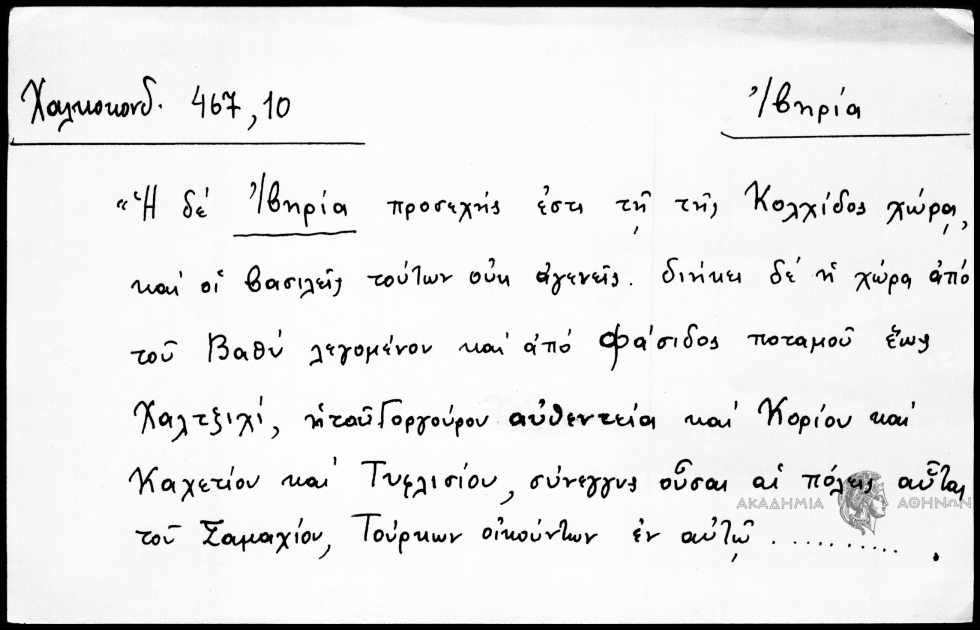 Χαλκοκονδ. 467,10
Ἰβηρία
“Ἡ δέ Ἰβηρία προσεχής ἐστι τῇ τῆς Κολχίδος χώρᾳ,
καί οἱ βασιλεῖς τούτων οὐκ ἀγενεῖς. διήκει δέ ἡ χώρα ἀπό
τοῦ Βαθύ λεγομένου καί ἀπό Φάσιδος ποταμοῦ ἕως
Χαλτζιχί, ἡ τοῦ Γοργούρου αὐθεντεία καί Κορίου καί
Καχετίου καί Τυφλισίου, σύνεγγυς οὖσαι αἱ πόλεις αὗται
ΑΚΑΔΗΜΙΑ ΑΘΗΝΩΝ
τοῦ Σαμαχίου, Τούρκων οἰκούντων ἐν αὐτῷ ...........